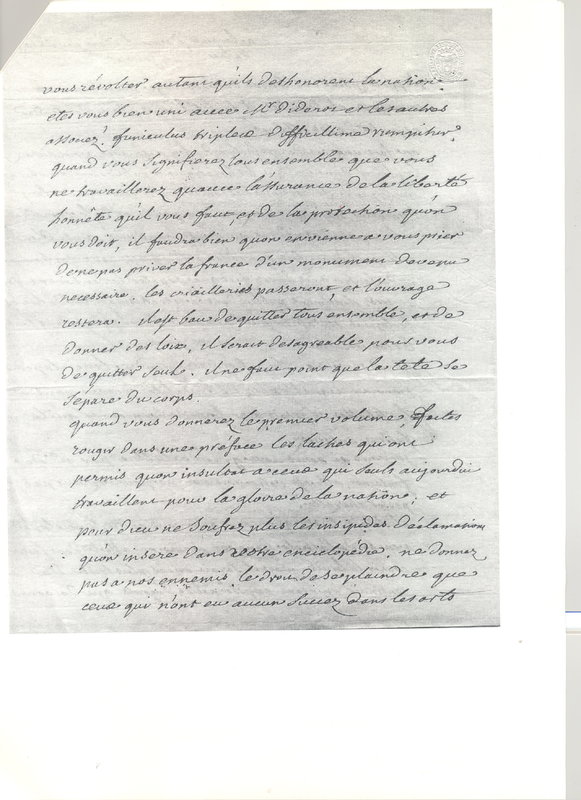 vous révolter autant quils deshonorent la nation.
etes vous bien uni avec Mr Diderot et les autres
associez? funiculus triplex difficillime rumpitur.
quand vous signifierez tous ensemble que vous
ne travaillerez quavec lassurance de la liberté
honnête quil vous faut, et de la protection qu'on
vous doit, il faudra bien quon en vienne a vous prier
de ne pas priver la france d'un monument devenu
necessaire. les criailleries passeront, et l'ouvrage
restera. il est bau de quitter tous ensemble, et de
donner des loix, il serait desagreable pour vous
de quitter seul. il ne faut point que la tete se
separe du corps.
quand vous donnerez le premier volume, faites
rougir dans une préface les laches qui ont
permis quon insultat a ceux qui seuls aujourdui
travaillent pour la gloire de la nation; et
pour dieu ne soufrez plus les insipides déclamations
qu'on insere dans votre enciclopédie. ne donnez
pas a nos ennemis le droit de se plaindre que
ceux qui n'ont eu aucun succez dans les arts